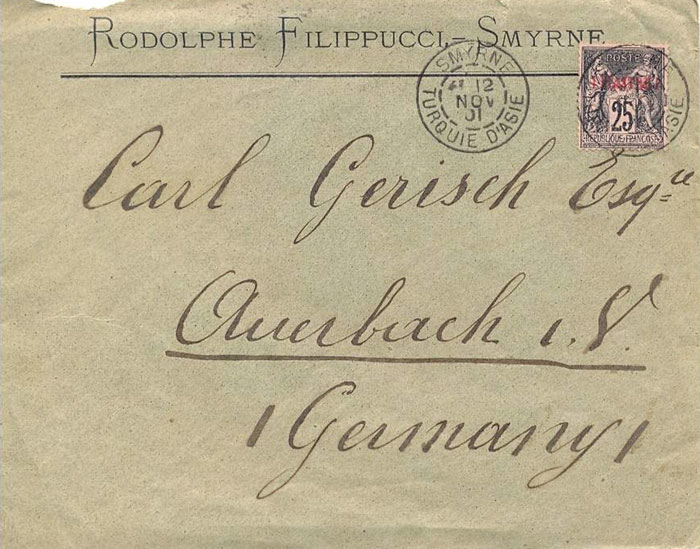 RODOLPHE FILIPPUCCI.- SMYRNE
SMYRNE
12
NOV
01
TURQUIE D'ASIE
POSTE
25
REPUBLIQUE FRANÇAISE
Carl Gerisch Esqre
Auerbach i. V.
(Germany)